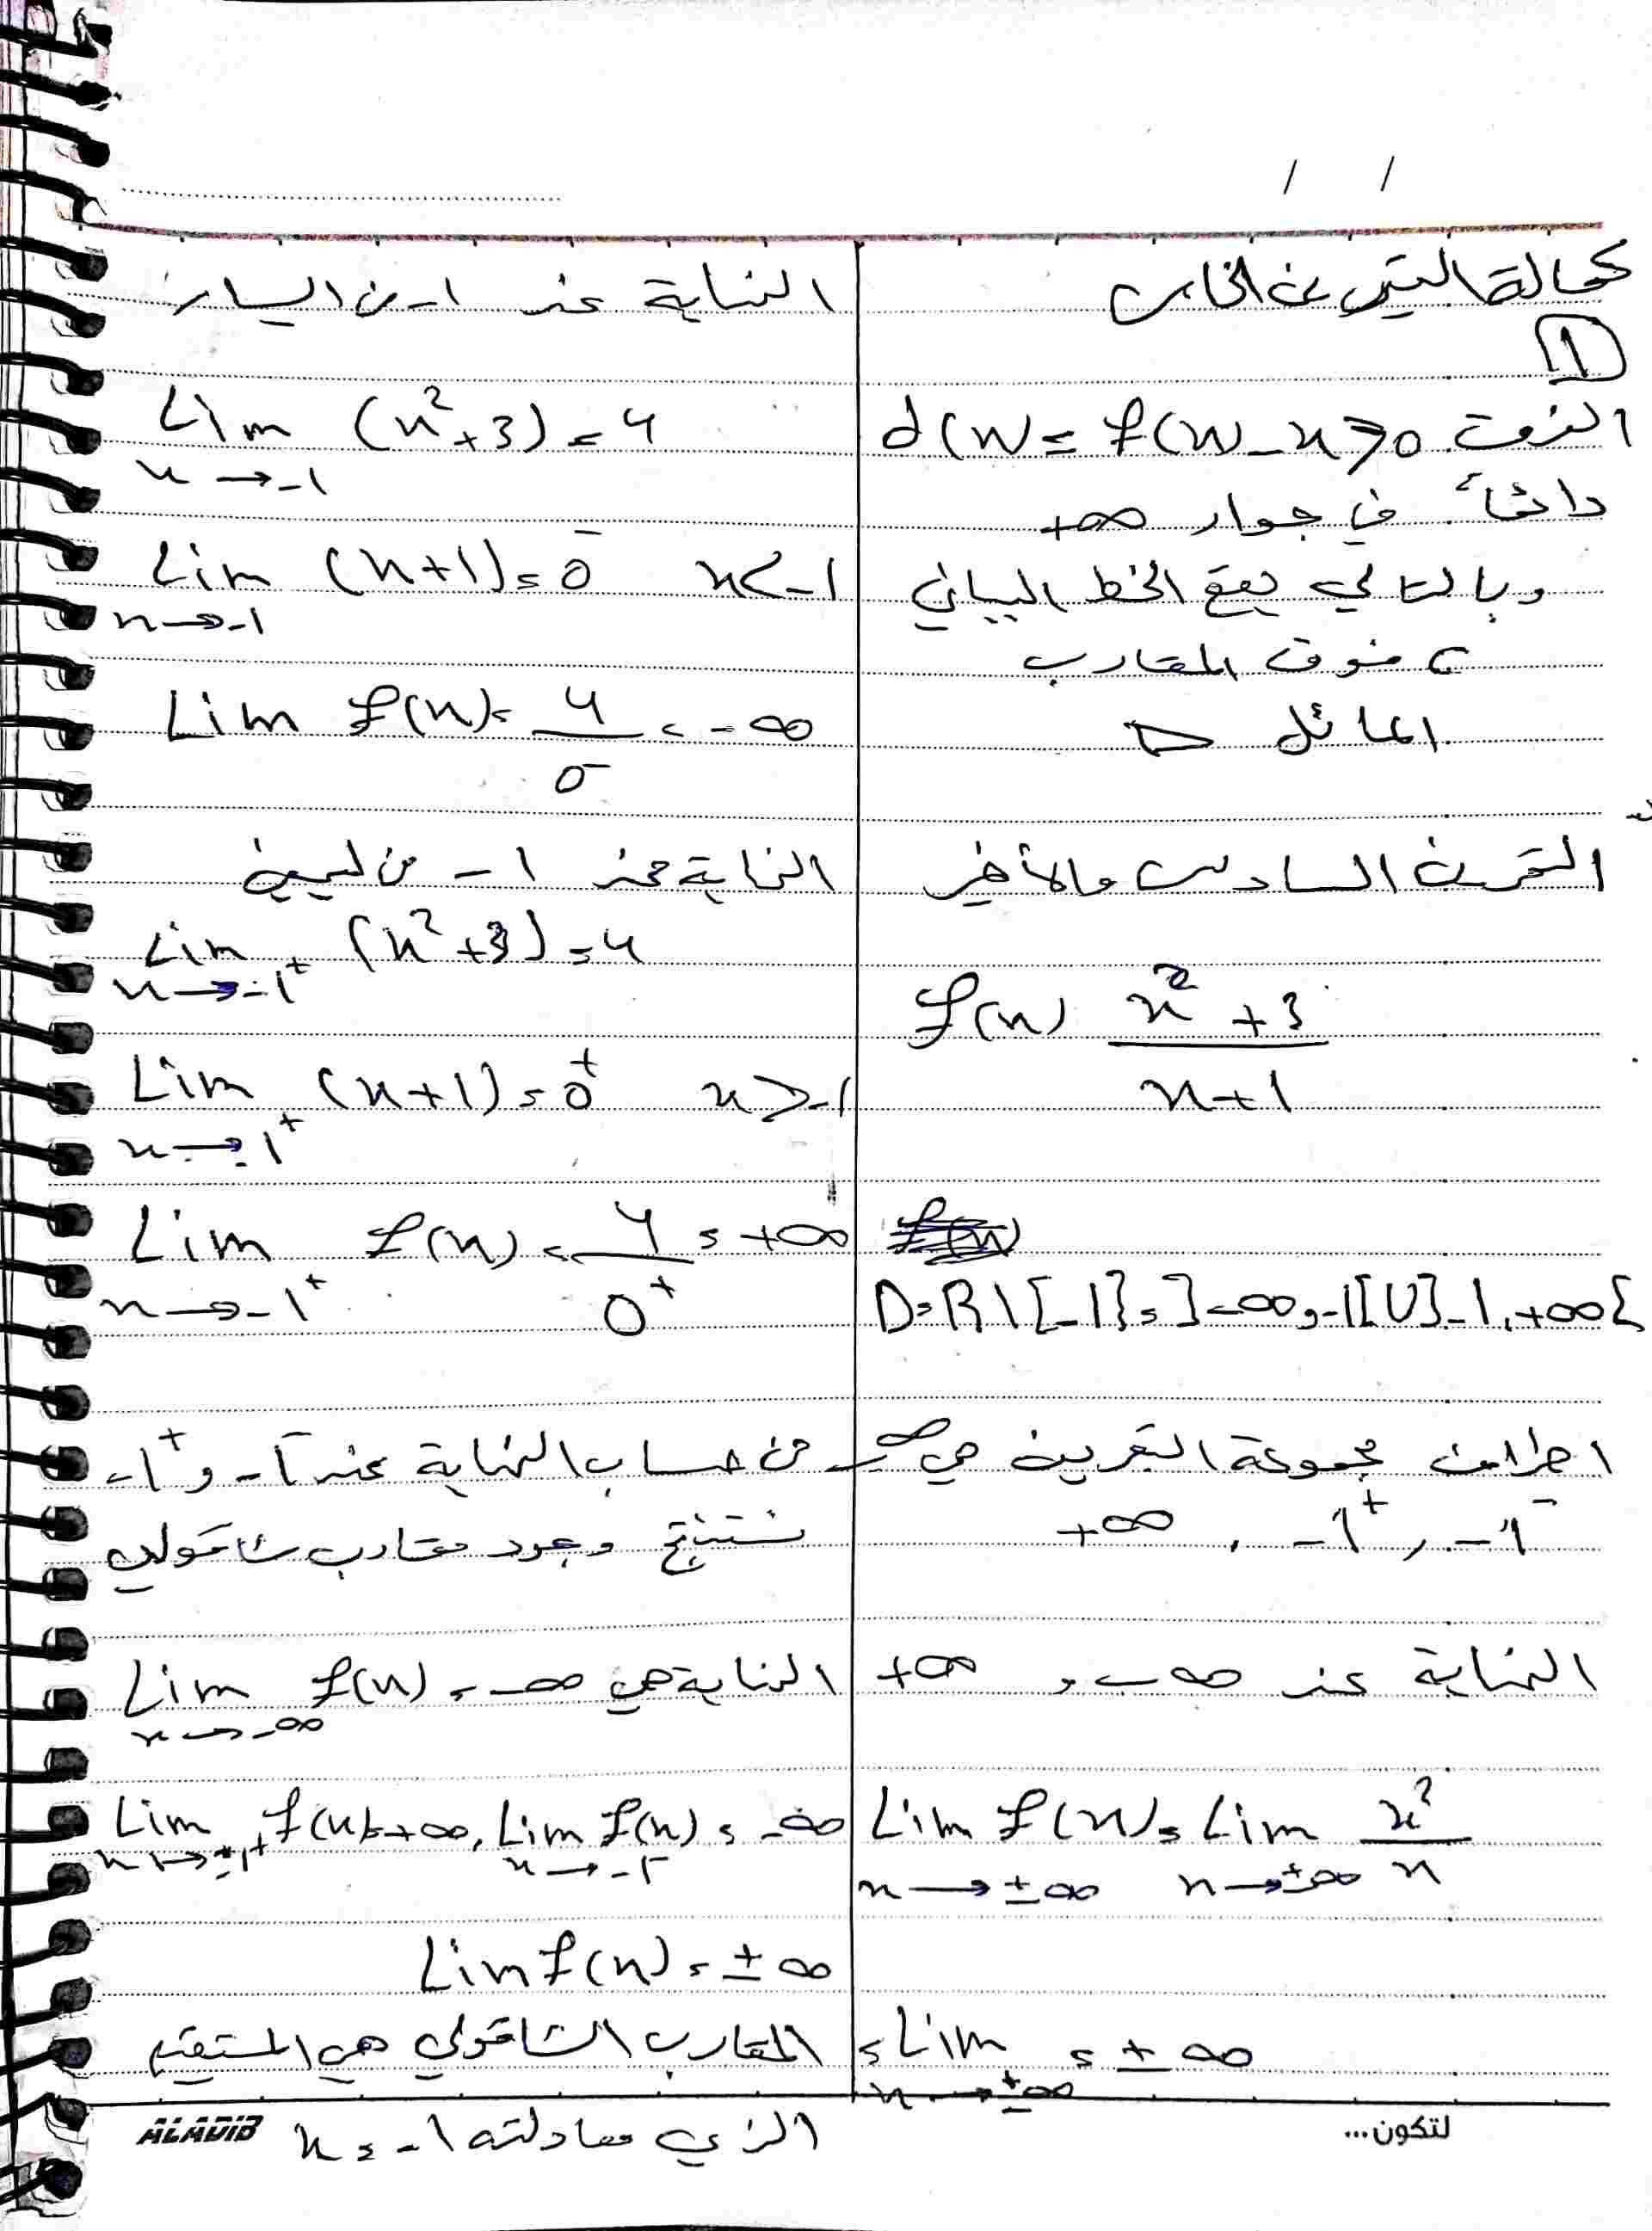 / /
كمالة التمرين الخامس
1
الفرق d(x) = f(x) - x > 0
دائماً في جوار +∞
وبالتالي يقع الخط البياني
C فوق المقارب
المائل D
التمرين السادس والأخير
f(x) x² + 3
x + 1
D = R \ {-1} = ]-∞, -1[ U ]-1, +∞[
اطراف مجموعة التعريف هي -∞
-1⁻, -1⁺, +∞
النهاية عند -∞ و +∞
Lim f(x) = Lim x²
x → ±∞ x → ±∞ x
= Lim = ± ∞
x → ±∞
النهاية عند -1 من اليسار
Lim (x² + 3) = 4
x → -1
Lim (x + 1) = 0⁻ x < -1
x → -1
Lim f(x) = 4 = -∞
0⁻
النهاية عند -1 من ليمين
Lim (x² + 3) = 4
x → -1⁺
Lim (x + 1) = 0⁺ x > -1
x → -1⁺
Lim f(x) = 4 = +∞
x → -1⁺ 0⁺
من حساب النهاية عند -1⁻ و -1⁺
نستنتج وجود مقارب شاقولي
النهاية هي Lim f(x) = -∞
x → -∞
Lim f(x) = +∞, Lim f(x) = -∞
x → -1⁺ x → -1⁻
Lim f(x) = ± ∞
المقارب الشاقولي هي المستقيم
الذي معادلته x = -1
ALADIB
لتكون...